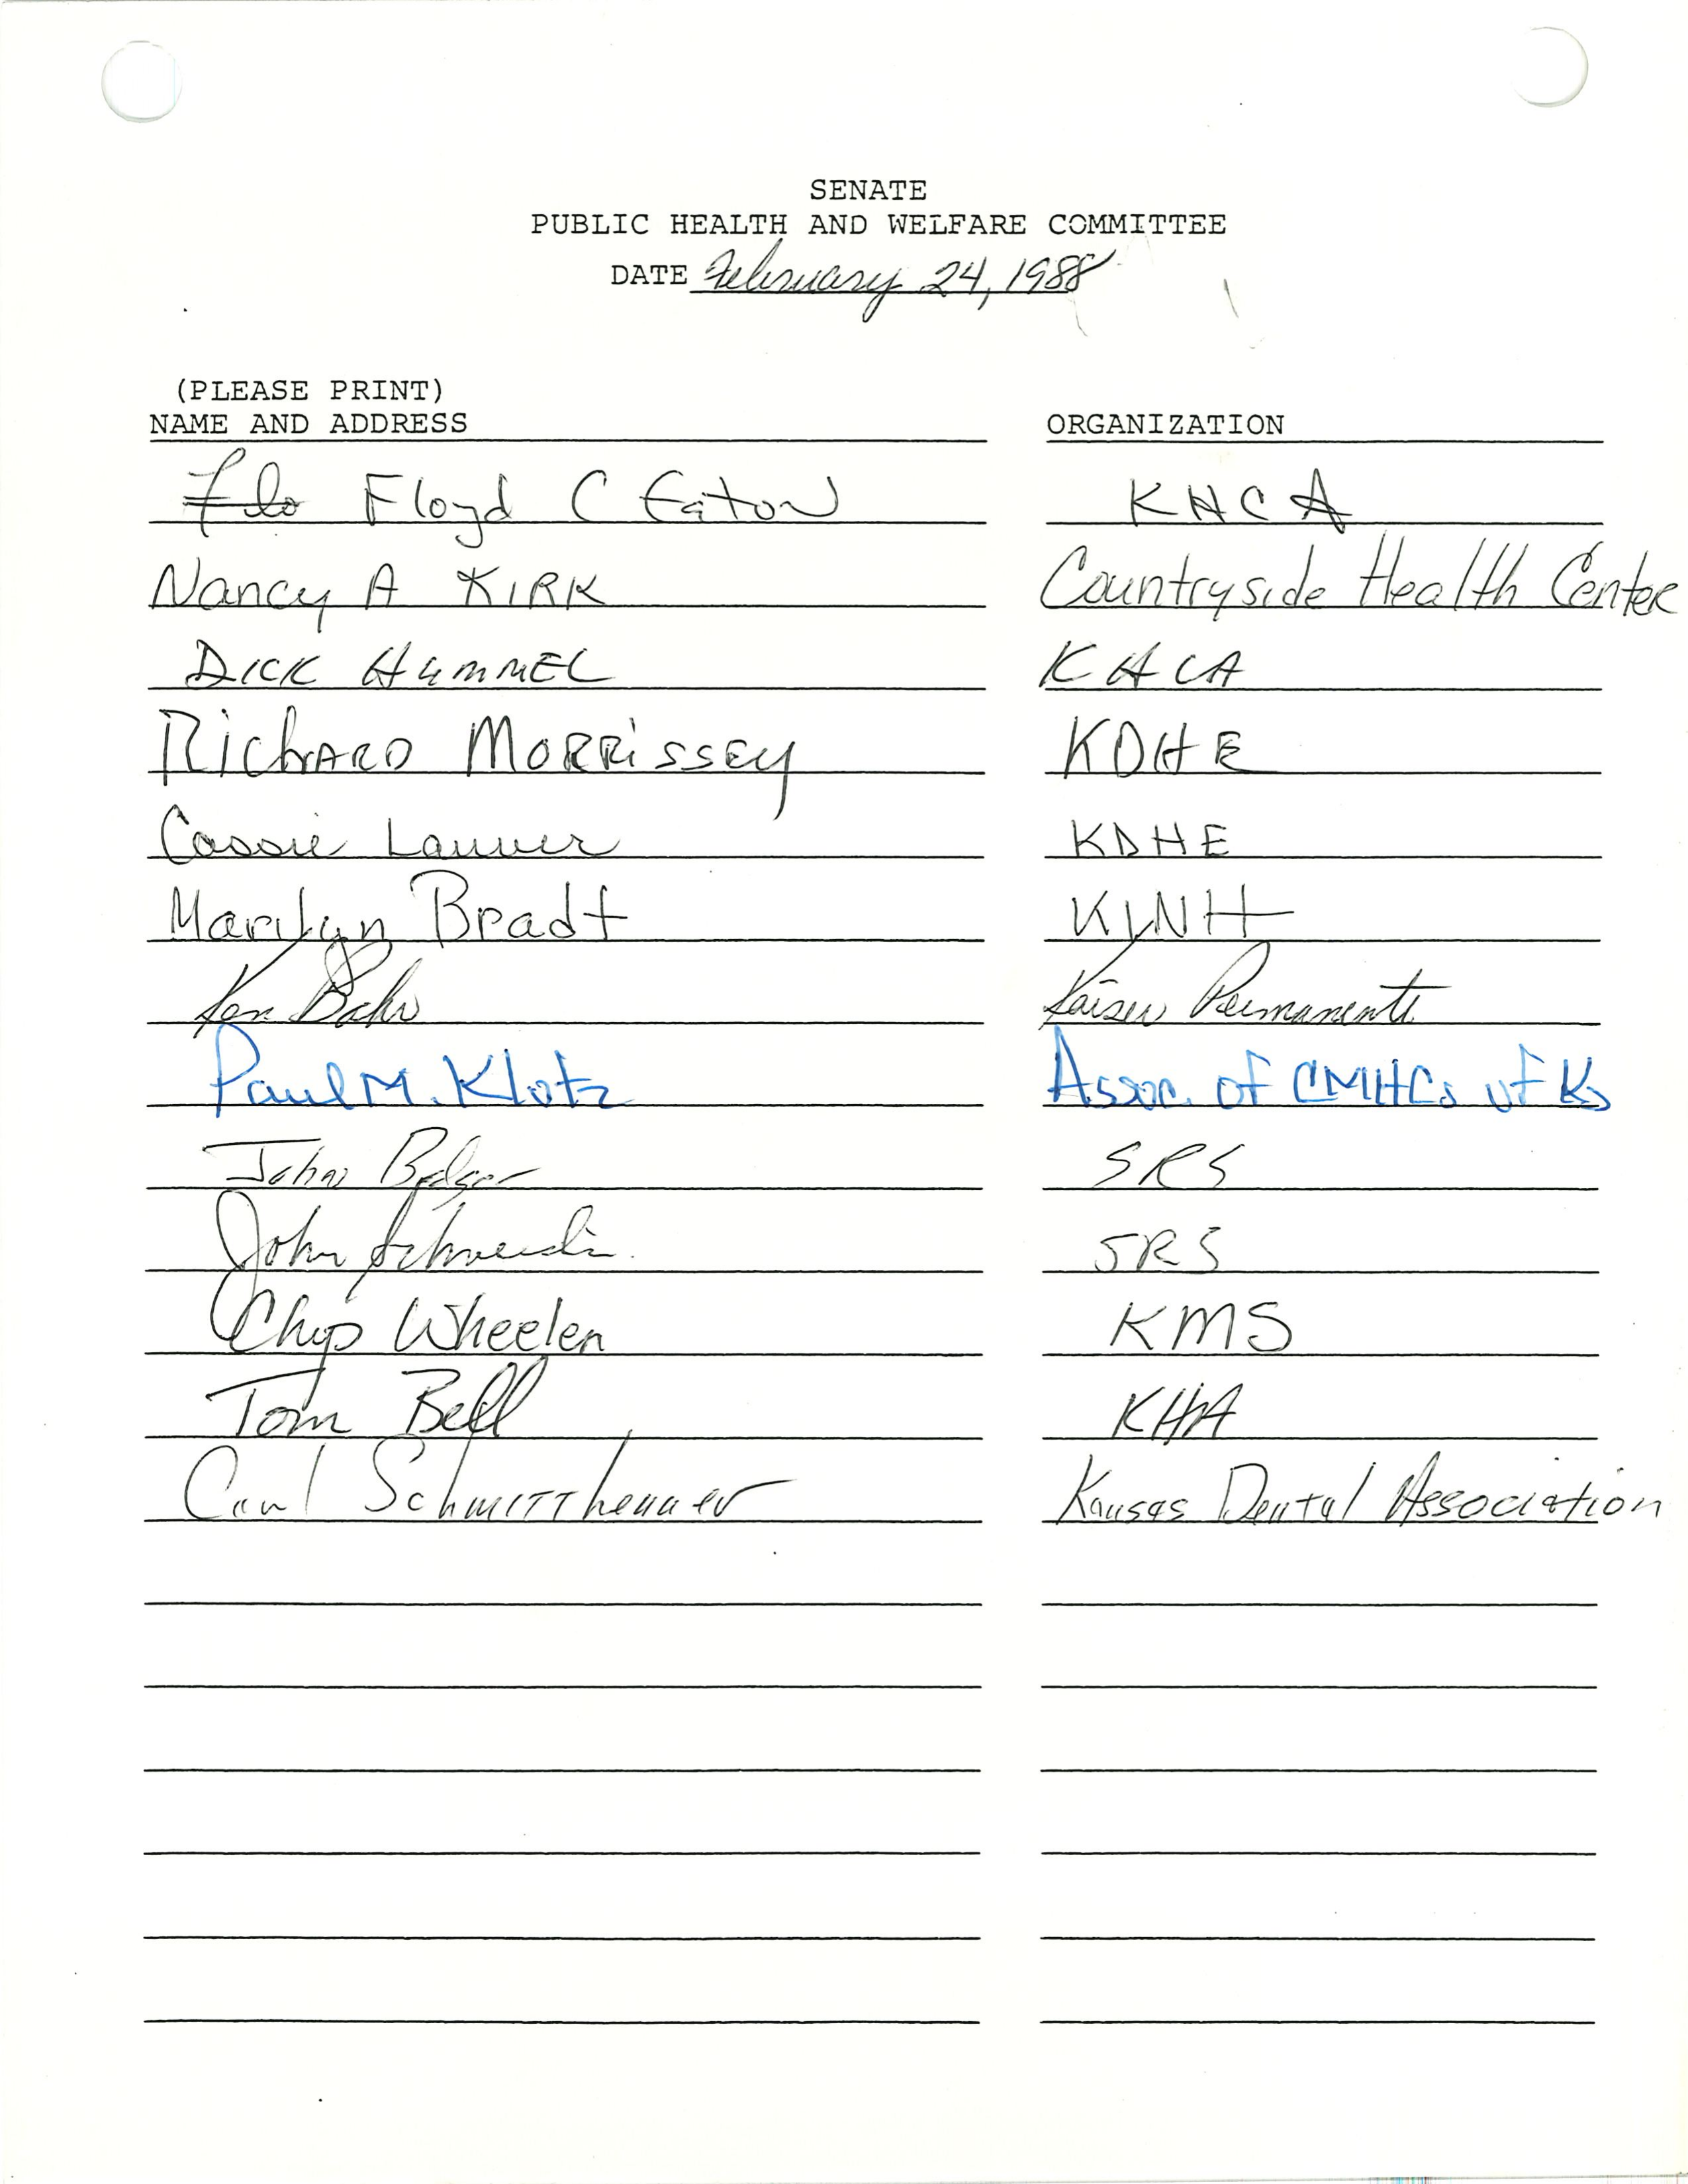 SENATE
PUBLIC HEALTH AND WELFARE COMMITTEE
DATE February 24, 1988
(PLEASE PRINT)
NAME AND ADDRESS ORGANIZATION
Flo Floyd C Eaton KHCA
Nancy A KIRK Countryside Health Center
DICK HUMMEL KHCA
RichARD MORRissey KDHE
Cassie Lauver KDHE
Marilyn Bradt KINH
Ken Bahr Kaiser Permanente
Paul M. Klotz Assoc. of CMHCs of Ks
John SRS
John Schneider SRS
Chip Wheelen KMS
Tom Bell KHA
Carl Schmitthenner Kansas Dental Association